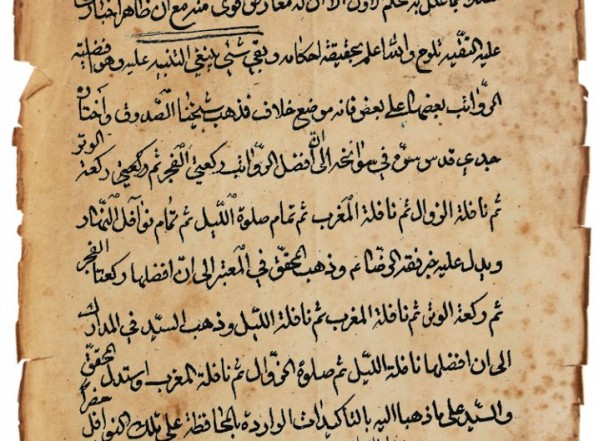 بحكم الاول الا ان له معارض قوى منه مع ان ظاهر اختيار
عليه التقيه تلوح والله اعلم بحقيقة احكامه وبقي شئ ينبغي التنبيه عليه وهو افضلية
الرواتب بعضها على بعض فانه موضع خلاف فذهب شيخنا الصدوق واختاره
جدي قدس سره في سوانحه الى ان افضل الرواتب ركعتي الفجر ثم ركعتي ركعة الوتر
ثم نافلة الزوال ثم نافلة المغرب ثم تمام صلوة الليل ثم تمام نوافل النهار
ويدل عليه خبر فقه الرضا ء م وذهب المحقق في المعتبر الى ان افضلها ركعتا الفجر
ثم ركعة الوتر ثم نافلة المغرب ثم نافلة الليل وذهب السيد في المدارك
الى ان افضلها نافلة الليل ثم صلوة الزوال ثم نافلة المغرب واستدل المحقق
والسيد على ما ذهبا اليه بالتأكيدات الواردة بالمحافظة على تلك النوافل